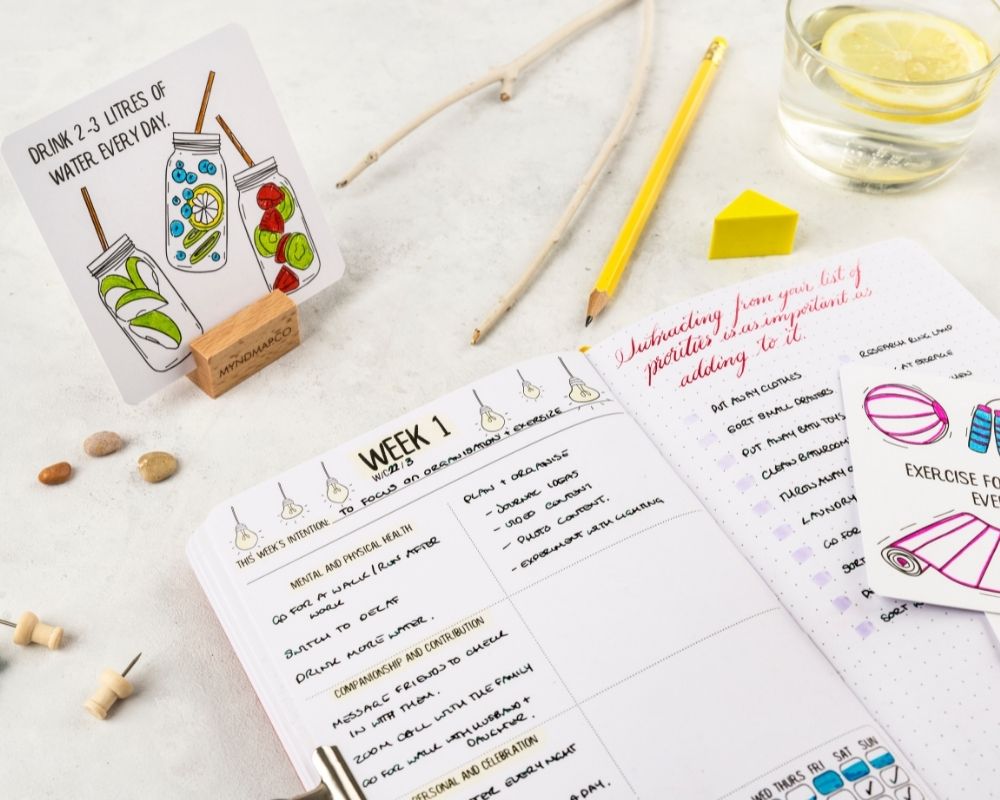 DRINK 2-3 LITRES OF
WATER EVERY DAY.
MYNDMAPCO
WEEK 1
W/C 22/3
THIS WEEK'S INTENTION: TO FOCUS ON ORGANISATION + EXERSIZE
MENTAL AND PHYSICAL HEALTH
GO FOR A WALK/RUN AFTER
WORK
SWITCH TO DECAF
DRINK MORE WATER.
COMPANIONSHIP AND CONTRIBUTION
MESSAGE FRIEND TO CHECK
IN WITH THEM.
ZOOM CALL WITH THE FAMILY
GO FOR WALK WITH HUSBAND +
DAUGHTER.
PERSONAL AND CELEBRATION
EVERY NIGHT
A DAY.
PLAN + ORGANISE
- JOURNAL IDEAS
- VIDEO CONTENT
- PHOTO CONTENT.
- EXPERIMENT WITH LIGHTING
WED THURS FRI SAT SUN
Subtracting from your list of
prorities is as important as
adding to it.
PUT AWAY CLOTHES
SORT SMALL DRAWERS
PUT AWAY BATH TOYS
CLEAN BATHROOM
THROW AWAY
LAUNDRY
GO FOR
SORT
SORT
RESEARCH RING LAMP
EXERCISE FO
EVE